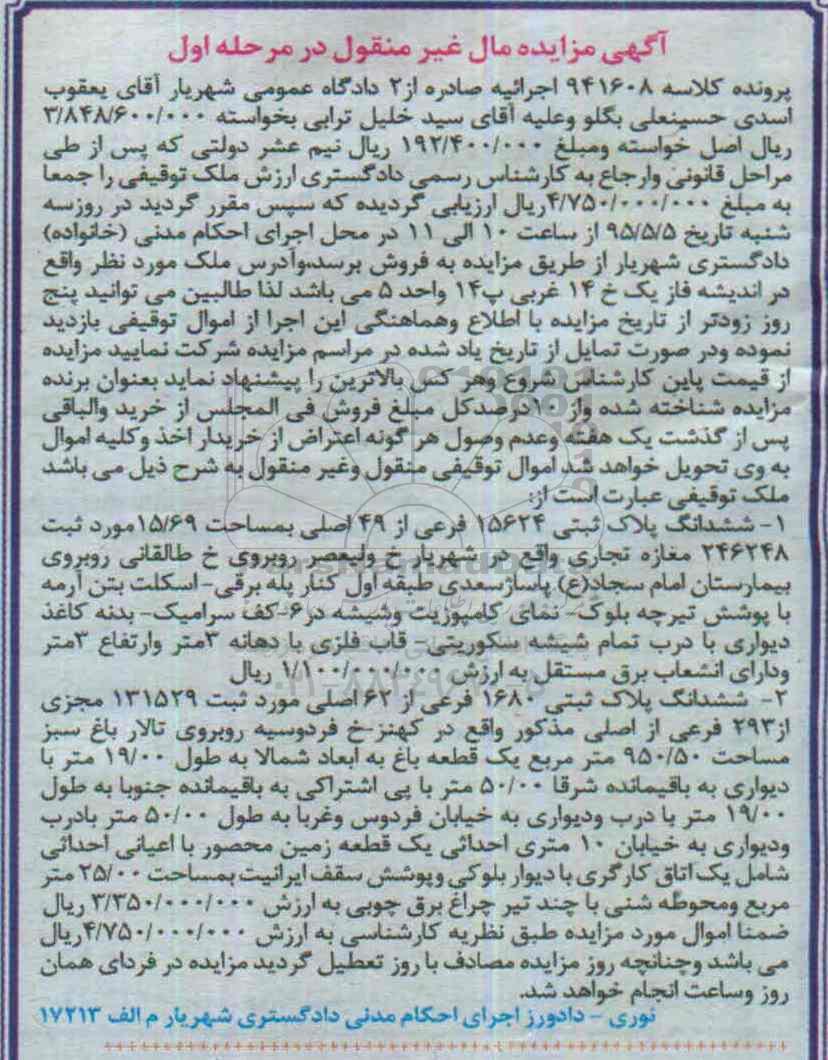 آگهی مزایده مال غیر منقول در مرحله اول
پرونده کلاسه ۹۴۱۶۰۸ اجرائیه صادره از۲ دادگاه عمومی شهریار آقای یعقوب
اسدی حسینعلی بگلو وعلیه آقای سید خلیل ترابی بخواسته ۳/۸۴۸/۶۰۰/۰۰۰
ریال اصل خواسته ومبلغ ۱۹۲/۴۰۰/۰۰۰ ریال نیم عشر دولتی که پس از طی
مراحل قانونی وارجاع به کارشناس رسمی دادگستری ارزش ملک توقیفی را جمعا
به مبلغ ۴/۷۵۰/۰۰۰/۰۰۰ریال ارزیابی گردیده که سپس مقرر گردید در روزسه
شنبه تاریخ ۹۵/۵/۵ از ساعت ۱۰ الی ۱۱ در محل اجرای احکام مدنی (خانواده)
دادگستری شهریار از طریق مزایده به فروش برسد،وآدرس ملک مورد نظر واقع
در اندیشه فاز یک خ ۱۴ غربی پ۱۴ واحد ۵ می باشد لذا طالبین می توانید پنج
روز زودتر از تاریخ مزایده با اطلاع وهماهنگی این اجرا از اموال توقیفی بازدید
نموده ودر صورت تمایل از تاریخ یاد شده در مراسم مزایده شرکت نمایید مزایده
از قیمت پاین کارشناس شروع وهر کس بالاترین را پیشنهاد نماید بعنوان برنده
مزایده شناخته شده واز ۱۰درصدکل مبلغ فروش فی المجلس از خرید والباقی
پس از گذشت یک هفته وعدم وصول هر گونه اعتراض از خریدار اخذ وکلیه اموال
به وی تحویل خواهد شد اموال توقیفی منقول وغیر منقول به شرح ذیل می باشد
ملک توقیفی عبارت است از:
۱- ششدانگ پلاک ثبتی ۱۵۶۲۴ فرعی از ۴۹ اصلی بمساحت ۱۵/۶۹مورد ثبت
۲۴۶۲۴۸ مغازه تجاری واقع در شهریار خ ولیعصر روبروی خ طالقانی روبروی
بیمارستان امام سجاد(ع) پاساژسعدی طبقه اول کنار پله برقی- اسکلت بتن آرمه
با پوشش تیرچه بلوک- نمای کامپوزیت وشیشه در۶-کف سرامیک- بدنه کاغذ
دیواری با درب تمام شیشه سکوریتی- قاب فلزی با دهانه ۳متر وارتفاع ۳متر
ودارای انشعاب برق مستقل به ارزش ۱/۱۰۰/۰۰۰/۰۰۰ ریال
۲- ششدانگ پلاک ثبتی ۱۶۸۰ فرعی از ۶۲ اصلی مورد ثبت ۱۳۱۵۲۹ مجزی
از۲۹۳ فرعی از اصلی مذکور واقع در کهنز-خ فردوسیه روبروی تالار باغ سبز
مساحت ۹۵۰/۵۰ متر مربع یک قطعه باغ به ابعاد شمالا به طول ۱۹/۰۰ متر با
دیواری به باقیمانده شرقا ۵۰/۰۰ متر با پی اشتراکی به باقیمانده جنوبا به طول
۱۹/۰۰ متر با درب ودیواری به خیابان فردوس وغربا به طول ۵۰/۰۰ متر بادرب
ودیواری به خیابان ۱۰ متری احداثی یک قطعه زمین محصور با اعیانی احداثی
شامل یک اتاق کارگری با دیوار بلوکی وپوشش سقف ایرانیت بمساحت ۲۵/۰۰ متر
مربع ومحوطه شنی با چند تیر چراغ برق چوبی به ارزش ۳/۳۵۰/۰۰۰/۰۰۰ ریال
ضمنا اموال مورد مزایده طبق نظریه کارشناسی به ارزش ۴/۷۵۰/۰۰۰/۰۰۰ریال
می باشد وچنانچه روز مزایده مصادف با روز تعطیل گردید مزایده در فردای همان
روز وساعت انجام خواهد شد.
نوری - دادورز اجرای احکام مدنی دادگستری شهریار م الف ۱۷۲۱۳